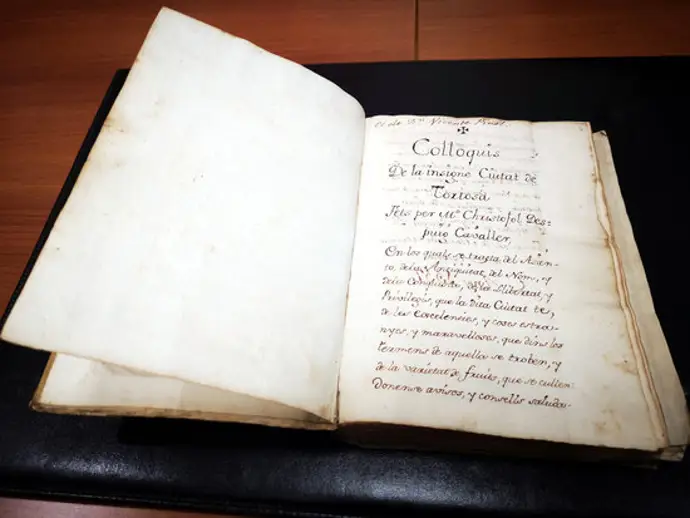 Es de Dn. Vicente
✠
Colloquis
De la insigne Ciutat de
Tortosa
Fets per Mo. Christofol Des-
puig Cavaller,
En los quals se tracta del Asien-
to, de la Antiguitat, del Nom, y
de la Conquista, de la Llibertat, y
Privilegis, que la dita Ciutat te,
de les Excelencies, y coses estra-
nyes, y maravelloses, que dins los
termens de aquella se troben, y
de la varietat de fruits, que se cullen:
Donense avisos, y consells saluda-